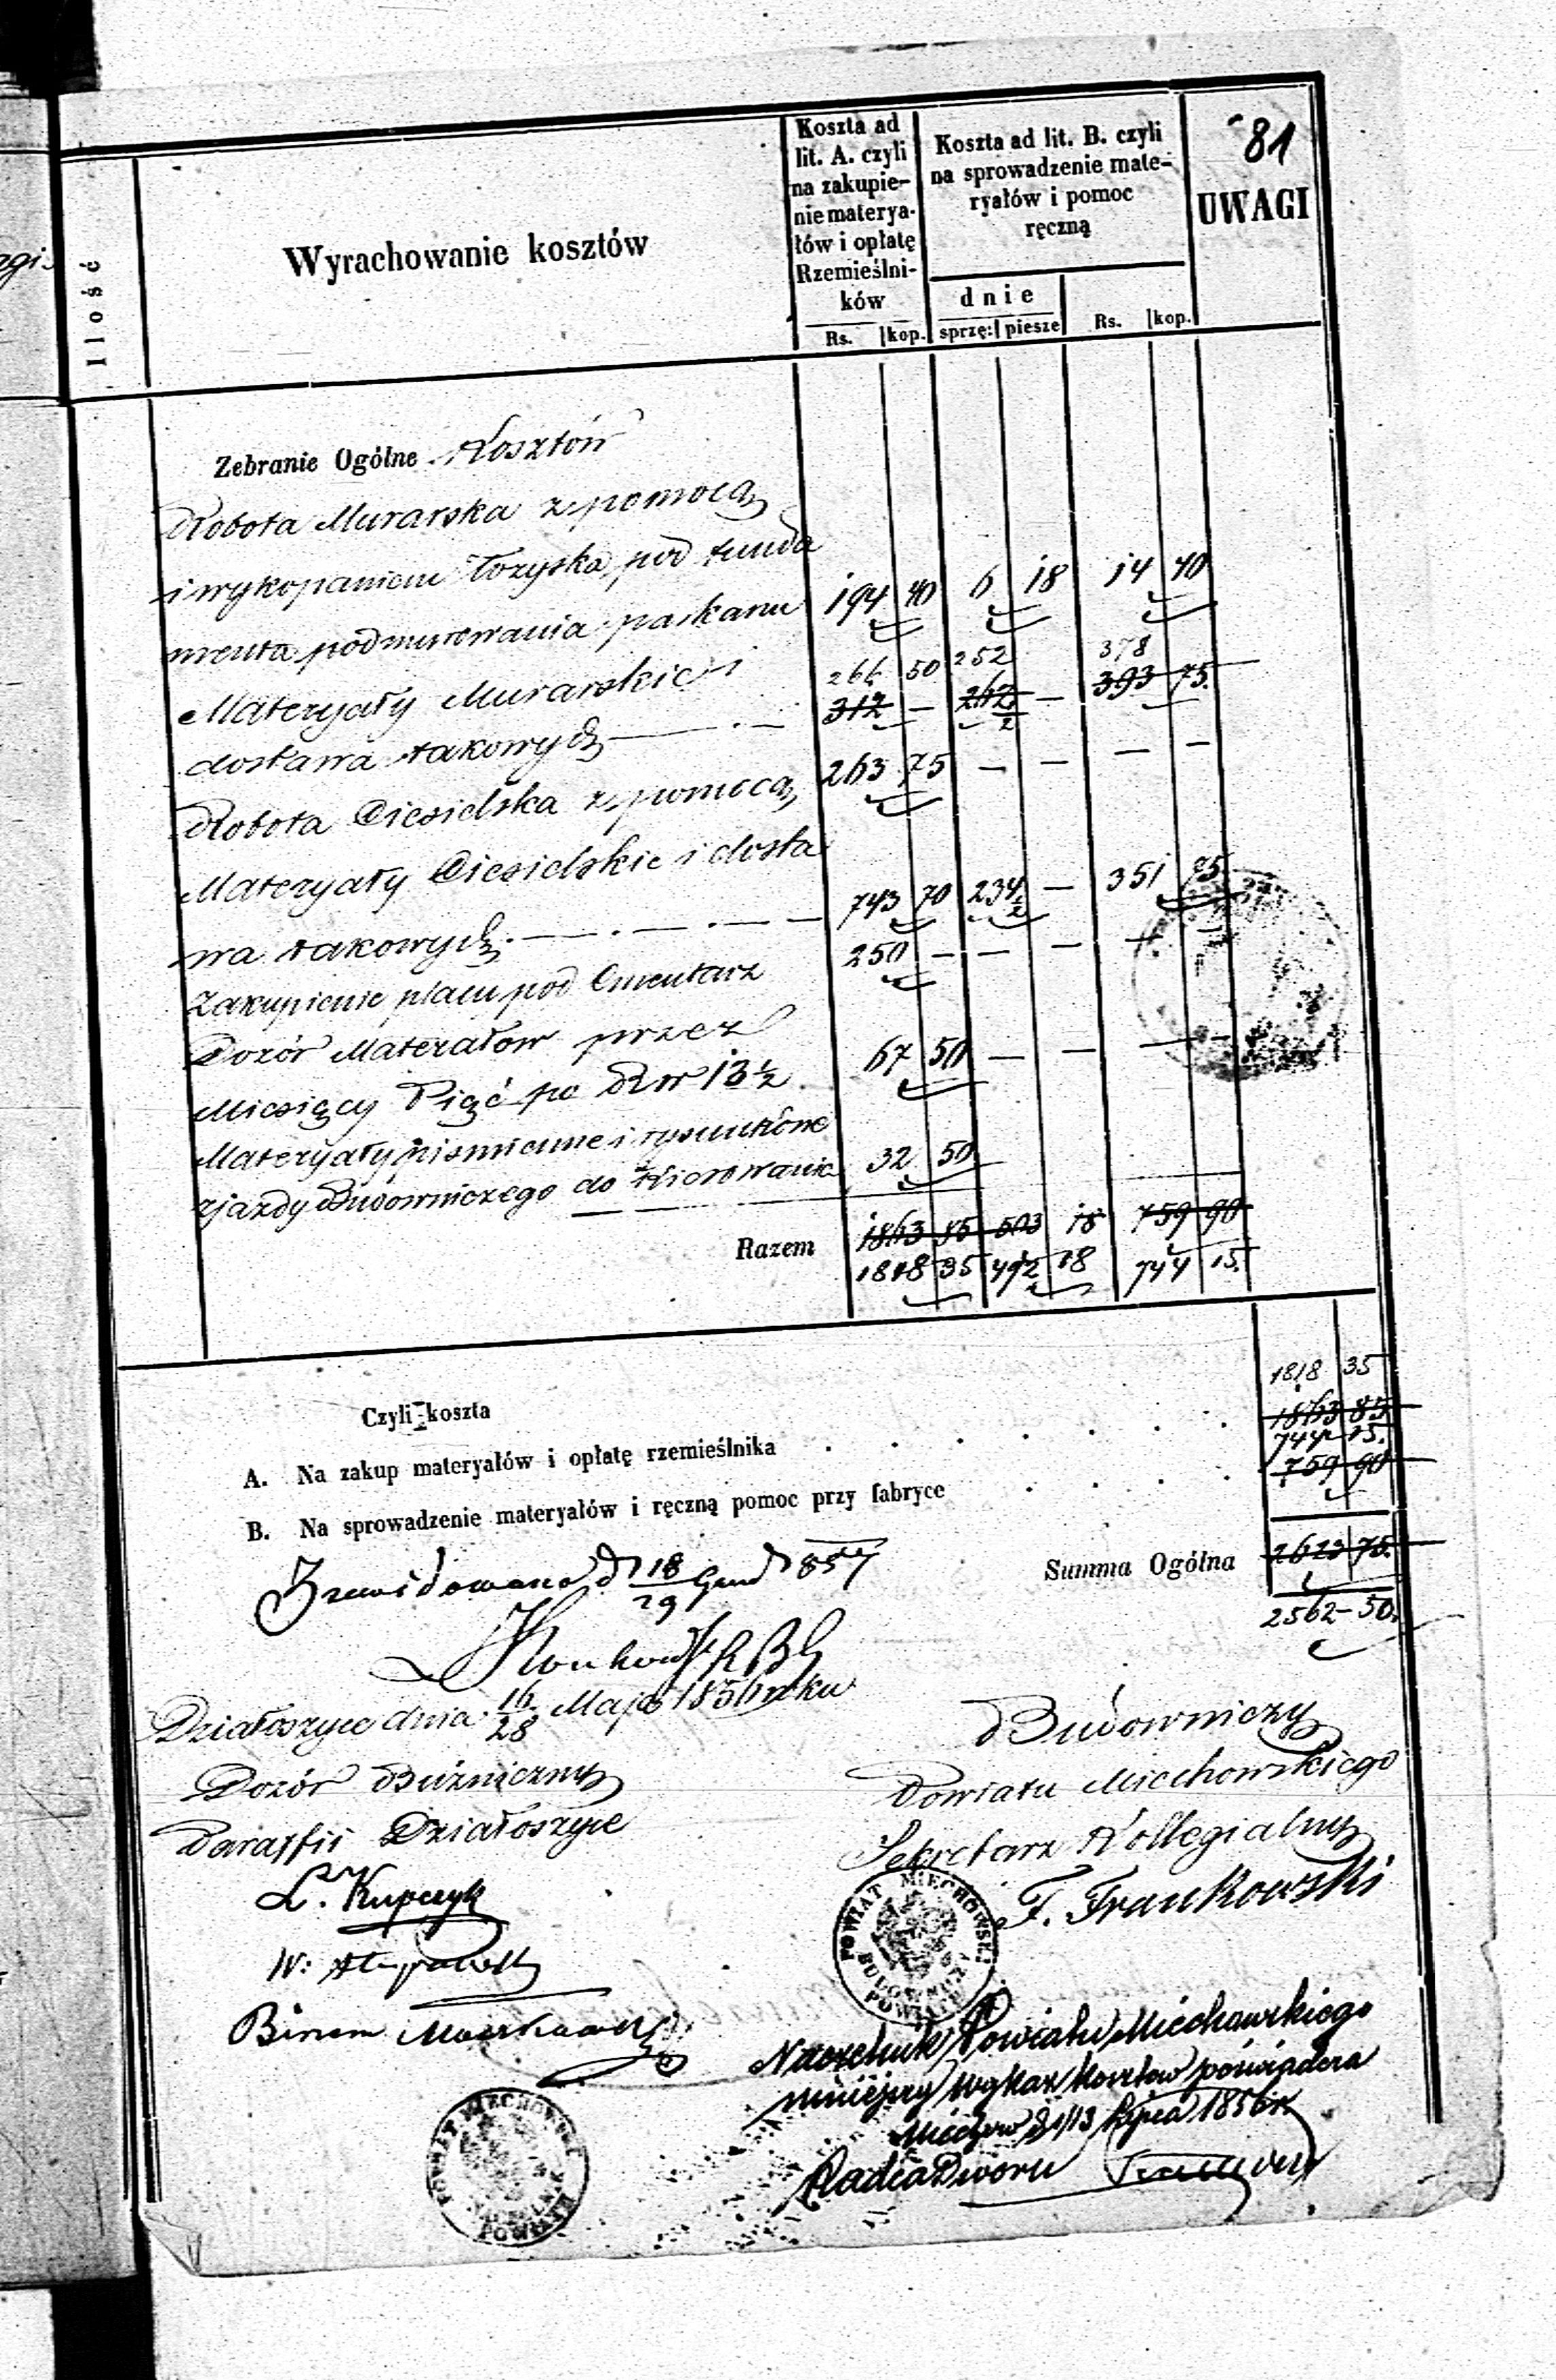 81
Ilość
Wyrachowanie kosztów
Koszta ad
lit. A. czyli
na zakupie-
nie materya-
łów i opłatę
Rzemieślni-
ków
Rs. kop.
Koszta ad lit. B. czyli
na sprowadzenie mate-
ryałów i pomoc
ręczną
dnie
sprzę: piesze Rs. kop.
UWAGI
Zebranie Ogólne Kosztów
Robota Murarska z pomocą
i wykopaniem łożyska pod funda
menta podmurowania parkanu 194 40 6 18 14 40
Materyały Murarskie i 266 50 252 378
dostawa takowych 312 — 262 1/2 — 393 75.
Robota Ciesielska z pomocą 263 75 — — — —
Materyały Ciesielskie i dosta
wa takowych 743 70 234 1/2 — 351 75
Zakupienie placu pod Cmentarz 250 — — —
Dozór Materałów przez
Miesięcy Pięć po Rsr 13 1/2 67 50 — — —
Materyały piśmienne i rysunkowe
zjazdy Budowniczego do kierowania 32 50
Razem 1863 85 503 18 759 90
1818 35 492 18 744 15.
Czyli koszta 1818 35
A. Na zakup materyałów i opłatę rzemieślnika 1863 85
744 15.
B. Na sprowadzenie materyałów i ręczną pomoc przy fabryce 759 90
Summa Ogólna 2623 75.
2562 50.
Zrewidowano d 18/29 857
Działoszyce dnia 16/28 Maja 1856 roku
Dozór Bóżniczny
Parafii Działoszyce
L. Kupczyk
W:
Binem
Budowniczy
Powiatu Miechowskiego
Sekretarz Kollegialny
F. Frankowski
POWIAT MIECHOWSKI
BUDOWNICZY
POWIATU
Naczelnik Powiatu Miechowskiego
niniejszy wykaz kosztów poświadcza
Miechów d 1/13 Lipca 1856 r.
Radca Dworu
POWIAT MIECHOWSKI
POWIATU